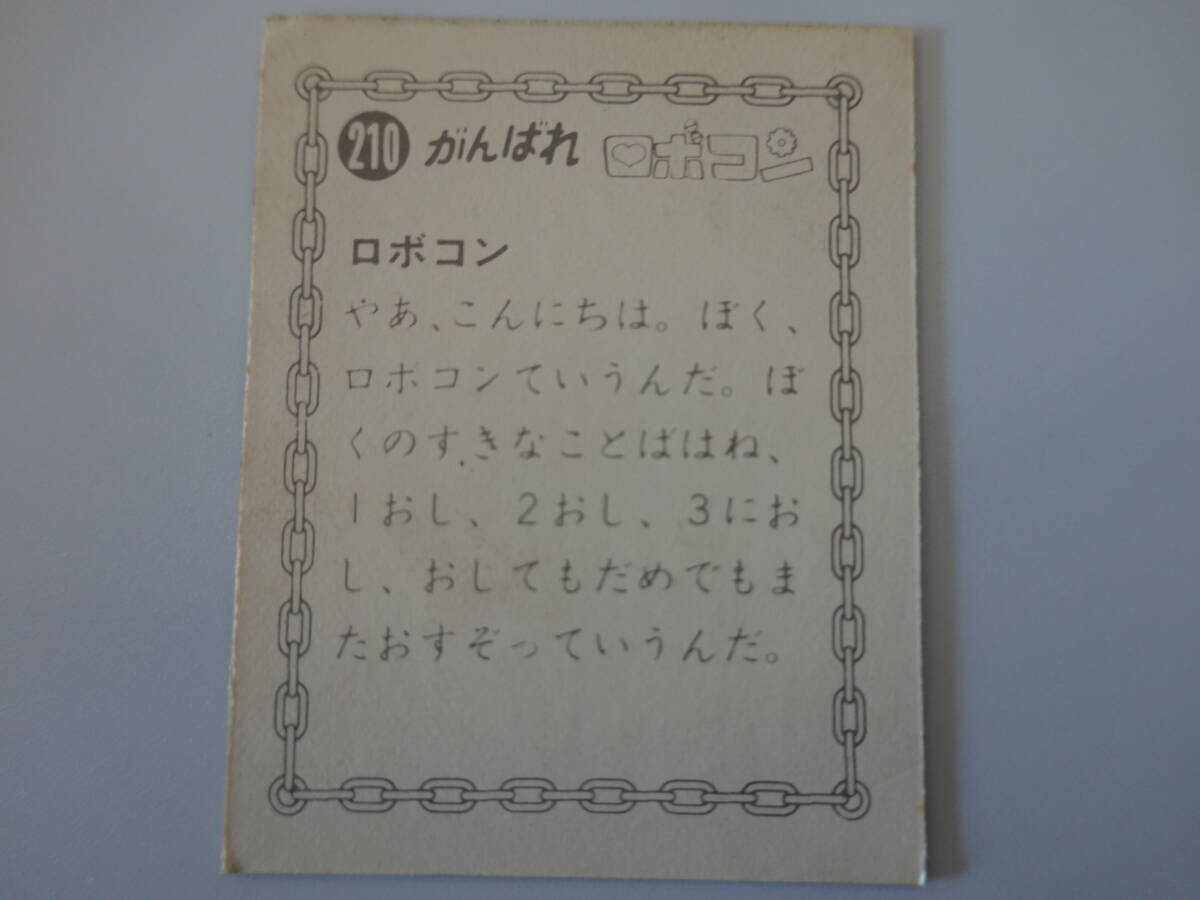 210 がんばれ ロボコン
ロボコン
やあ、こんにちは。ぼく、
ロボコンていうんだ。ぼ
くのすきなことばはね、
1おし、2おし、3にお
し、おしてもだめでもま
たおすぞっていうんだ。